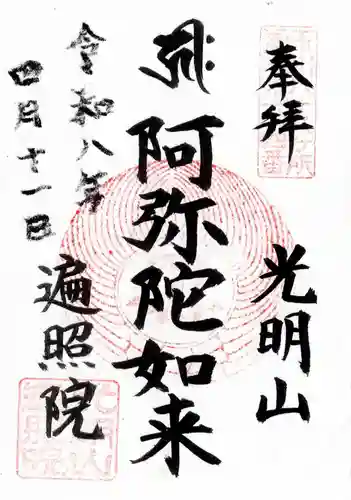 奉拝
光明山
阿弥陀如来
令和八年
四月十一日
遍照院